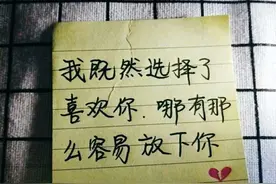 我既然选择了
喜欢你.哪有那
么容易放下你